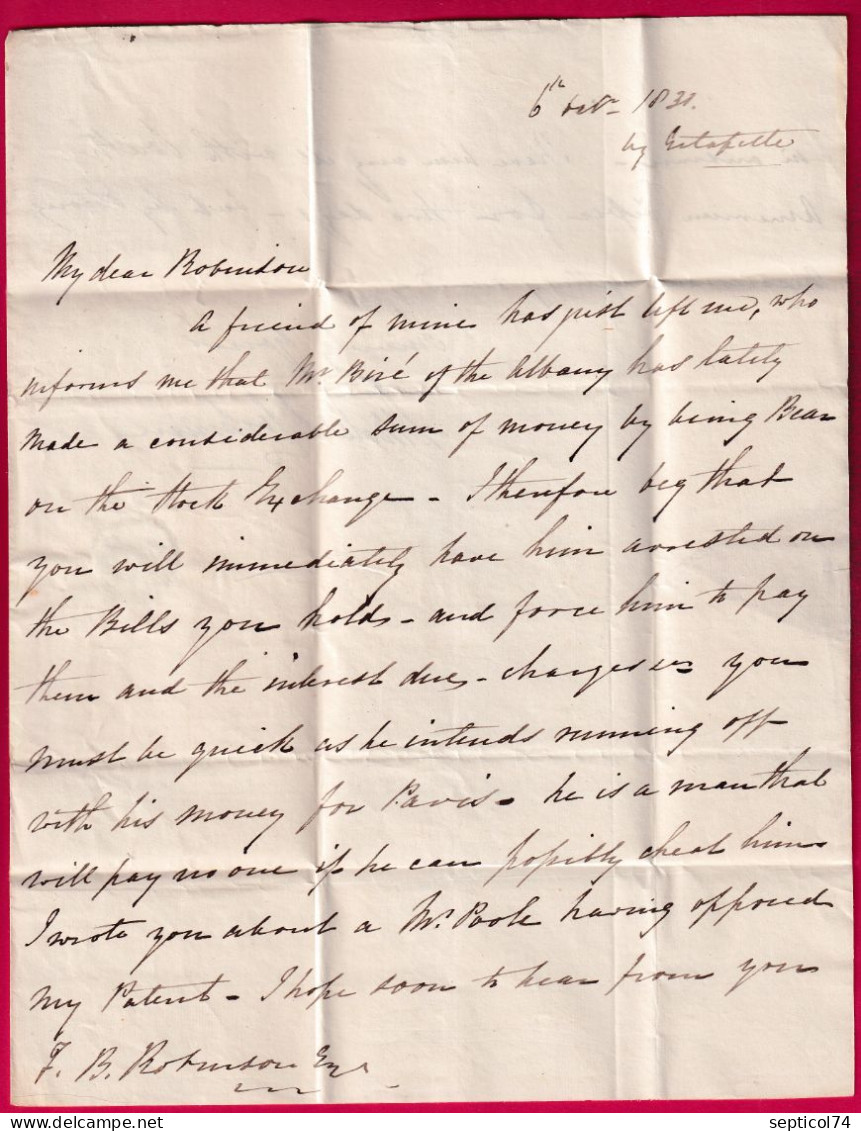 6th Octr 1831.
by Estafette
My dear Robinson
A friend of mine has just left me, who
informs me that Mr Biré of the Albany has lately
made a considerable sum of money by being Bear
on the Stock Exchange - I therefore beg that
you will immediately have him arrested on
the Bills you hold - and force him to pay
them and the interest due - charges &c you
must be quick as he intends running off
with his money for Paris - he is a man that
will pay no one if he can possibly cheat him
I wrote you about a Mr Poole having opposed
my Patent - I hope soon to hear from you
F. B. Robinson Esqr
©septicol74